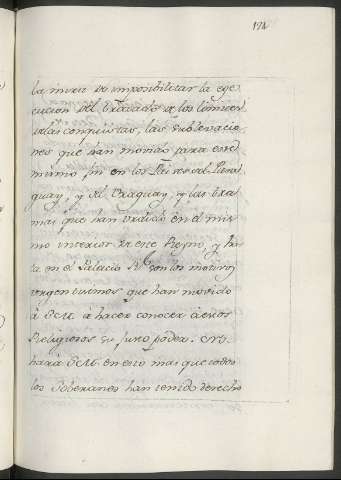 174
la mira de imposibilitar la ege
cucion del tratado de los limites
de las conquistas, las sublevacio
nes que han movido para este
mismo fin en los Paises del Para
guay, y del Uraguay, y las tra
mas que han urdido en el mis
mo interior de este Reyno, y has
ta en el Palacio Rl son los motivos
urgentisimos que han movido
à S.M. à hacer conocer à estos
Religiosos su justo poder.
hará S.M. en esto mas que todos
los Soberanos han tenido derecho